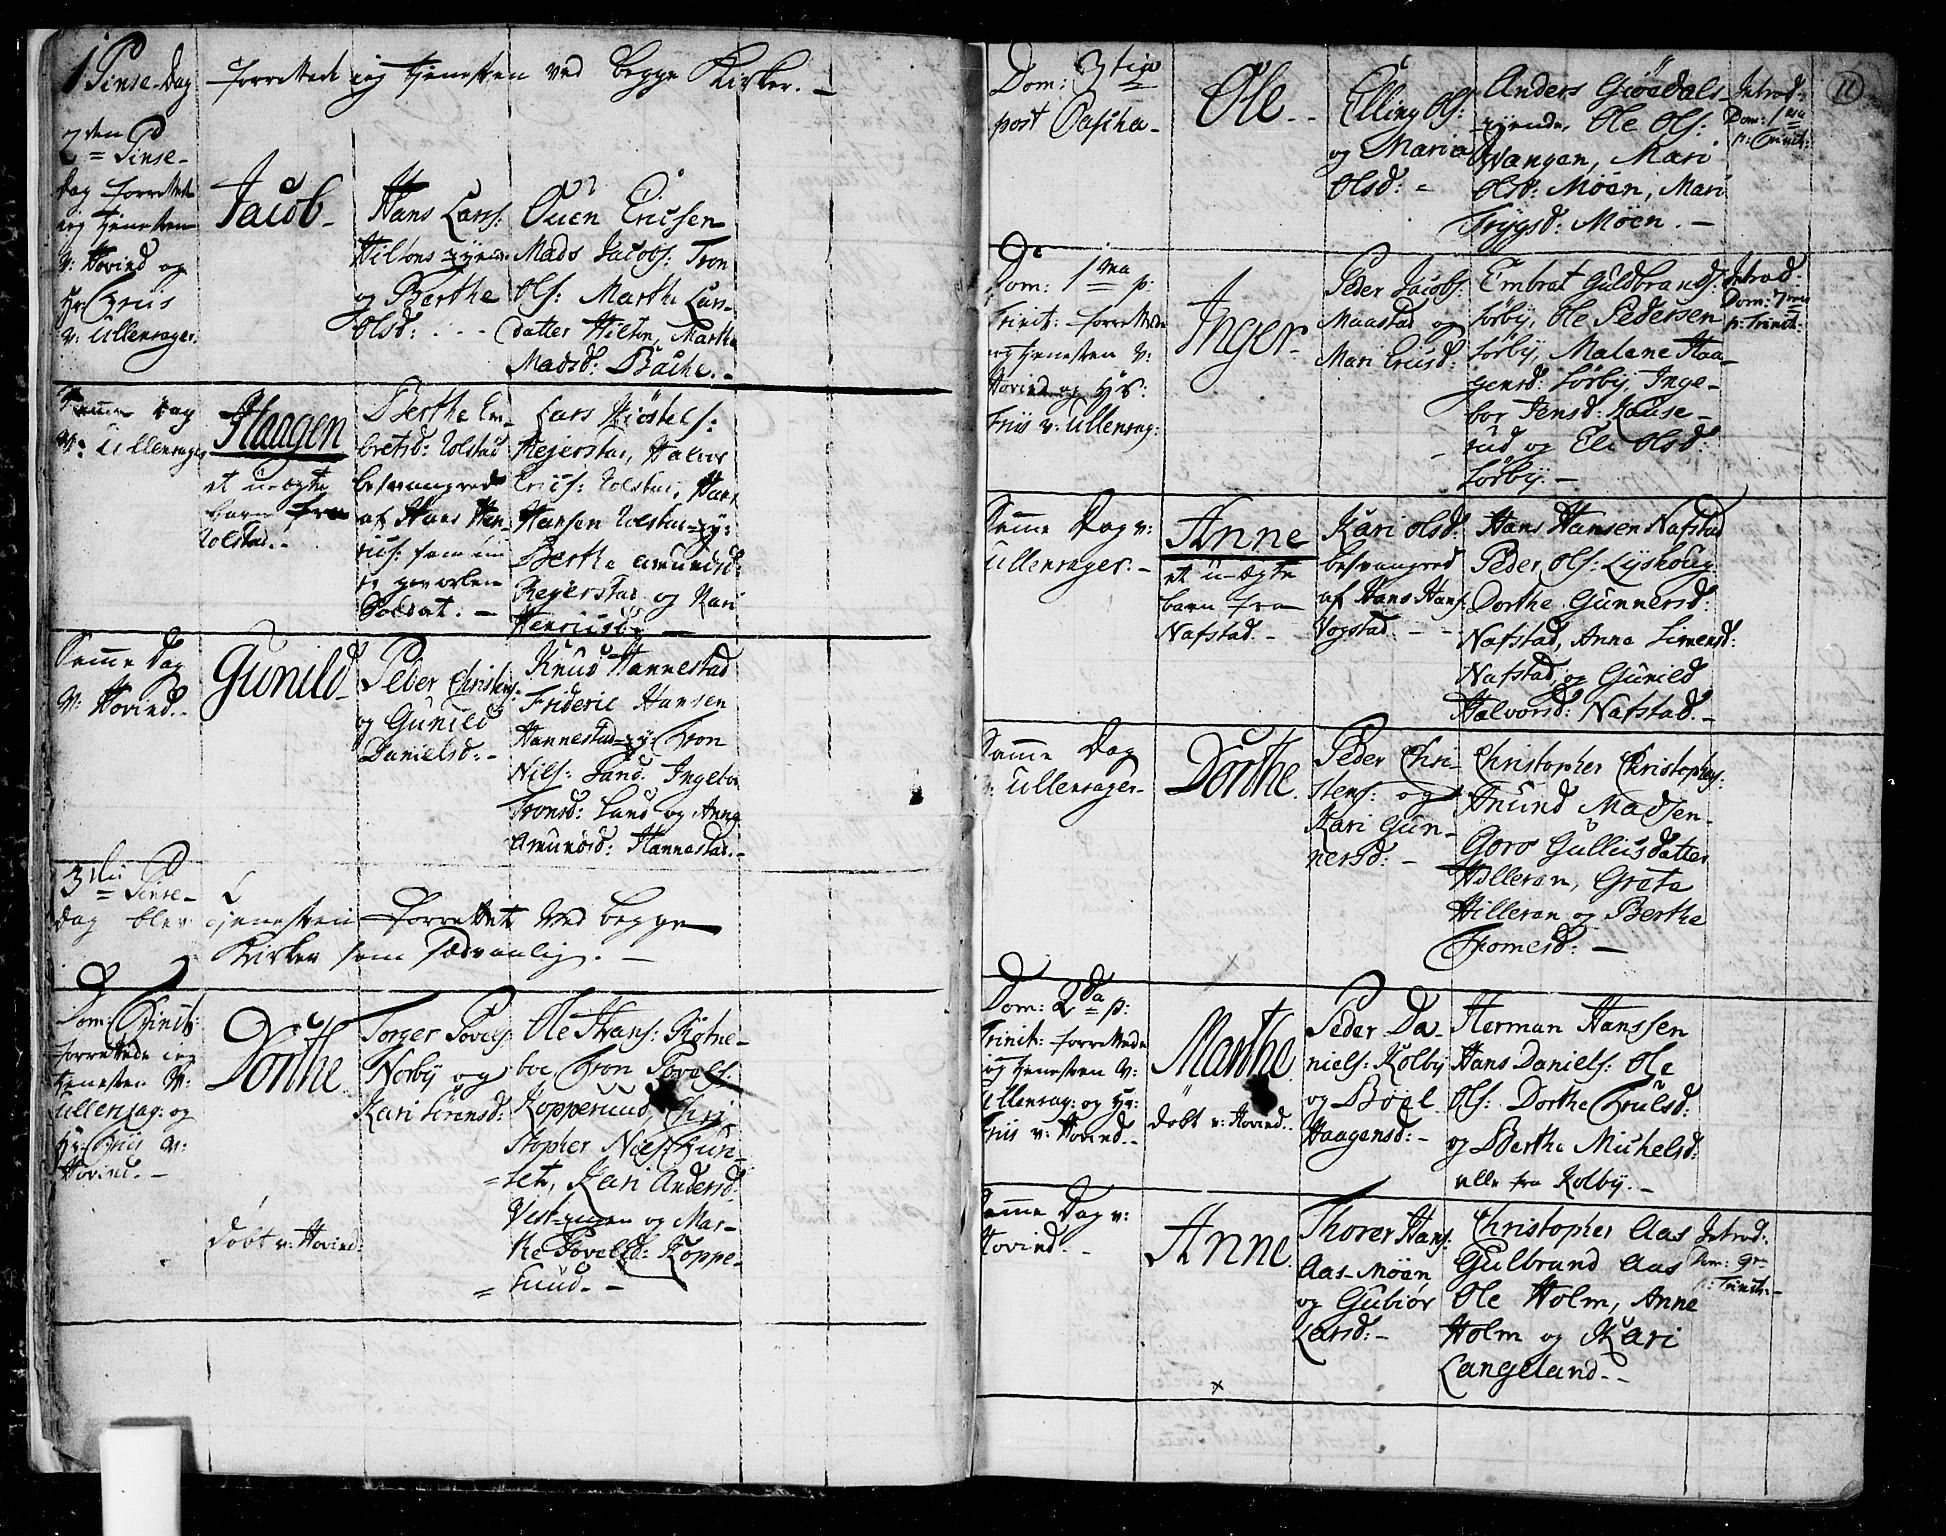 1 Pinse-Dag forrettede ieg tienesten ved begge Kirker. -
2den Pinse-
Dag forrettede
ieg tienesten
v: Hovind og
Hr: Friis
v: Ullensager.
Jacob -
Hans Lars:
Hiltons
og Berthe
Olsd: . . -
Ouen Ericsen
Mads Jacobs: Tron
Ols: Marthe Lars-
datter Hilton, Marthe
Madsd: Bache. -
Samme Dag
v: Ullensager
Haagen
et uægte
barn fra
Tolstad. -
Berthe Em-
bretsd: Tolstad
besvangred
af Hans Hen-
rics: som nu
er
Soldat. -
Lars Kiöstels:
Rejerstad, Halvor
Erics: Tolstad, Hans
Hansen Tolstad
Berthe Amundsd:
Rejerstad og Kari
Henricsd: -
Samme Dag
v: Hovind. -
Gunild -
Peder Christens:
og Gunild
Danielsd: -
Knud Hannestad
Frideric Hansen
Hannestad Tron
Nils: Sand. Ingebor
Tronsd: Sand og Anne
Amundsd: Hannestad. -
3die Pinse-
dag blev tienesten forrettet ved begge
Kirker som sædvanlig. -
Dom: Trinit:
forrettede ieg
tienesten v:
Ullensag: og
Hr: Friis v:
Hovind. -
Dorthe.
döbt v: Hovind.
Torger Povels:
Norby og
Kari Sörensd:
Ole Hans: Kötne-
boe, Tron Povels:
Kopperuud, Chri-
stopher Niels:
Kari Andersd:
og Mar-
the Povelsd: Koppe-
ruud. -
11
Dom: 3tia
post Pascha -
Ole -
Elling Ols:
og Maria
Olsd: -
Anders Giödals-
Ole Ols:
Wangen, Mari
Olsd: Möen, Mari
Trygsd: Möen. -
Introd:
Dom: 1ma
p: Trinit:
Dom: 1ma p:
Trinit: forrettede
ieg tienesten v:
Hovind og Hr:
Friis v: Ullensag:
Inger -
Peder Jacobs:
Maastad og
Mari Ericsd:
Embret Guldbrands:
Sörby, Ole Pedersen
Sörby, Malene Haa-
gensd: Sörby, Inge-
bor Jensd: Kause-
rud og Eli Olsd:
Sörby. -
Introd:
Dom:
p: Trinit:
Samme Dag v:
Ullensager. -
Anne
et u-ægte
barn fra
Nafstad. -
Kari Olsd:
besvangred
af Hans Hans:
Vogstad. -
Hans Hansen Nafstad
Peder Ols: Lyshoug.
Dorthe Gunnersd:
Nafstad, Anne Simensd:
Nafstad, og Gunild
Halvorsd: Nafstad. -
Samme Dag
v: Ullensager -
Dorthe.
Peder Chri-
stens: og
Kari Gun-
nersd: -
Christopher Christophers:
Anund Madsen
Goro Gulliusdatter
Hilleran, Grete
Hilleran og Berthe
Tromesd: -
Dom: 2da p:
Trinit: forrettede
ieg tienesten v:
Ullensag: og Hr:
Friis v: Hovind. -
Marthe.
döbt v: Hovind.
Peder Da-
niels: Kolby
og Böel
Haagensd: -
Herman Hanssen
Hans Daniels: Ole
Ols: Dorthe Trulsd:
og Berthe Michelsd:
alle fra Kolby. -
Samme Dag v:
Hovind. -
Anne.
Thorer Hans:
Aas-Möen,
og Gubiör
Larsd: -
Christopher Aas
Gulbrand Aas
Ole Holm, Anne
Holm og Kari
Langeland. -
Introd:
Dom: 9
p: Trinit: -